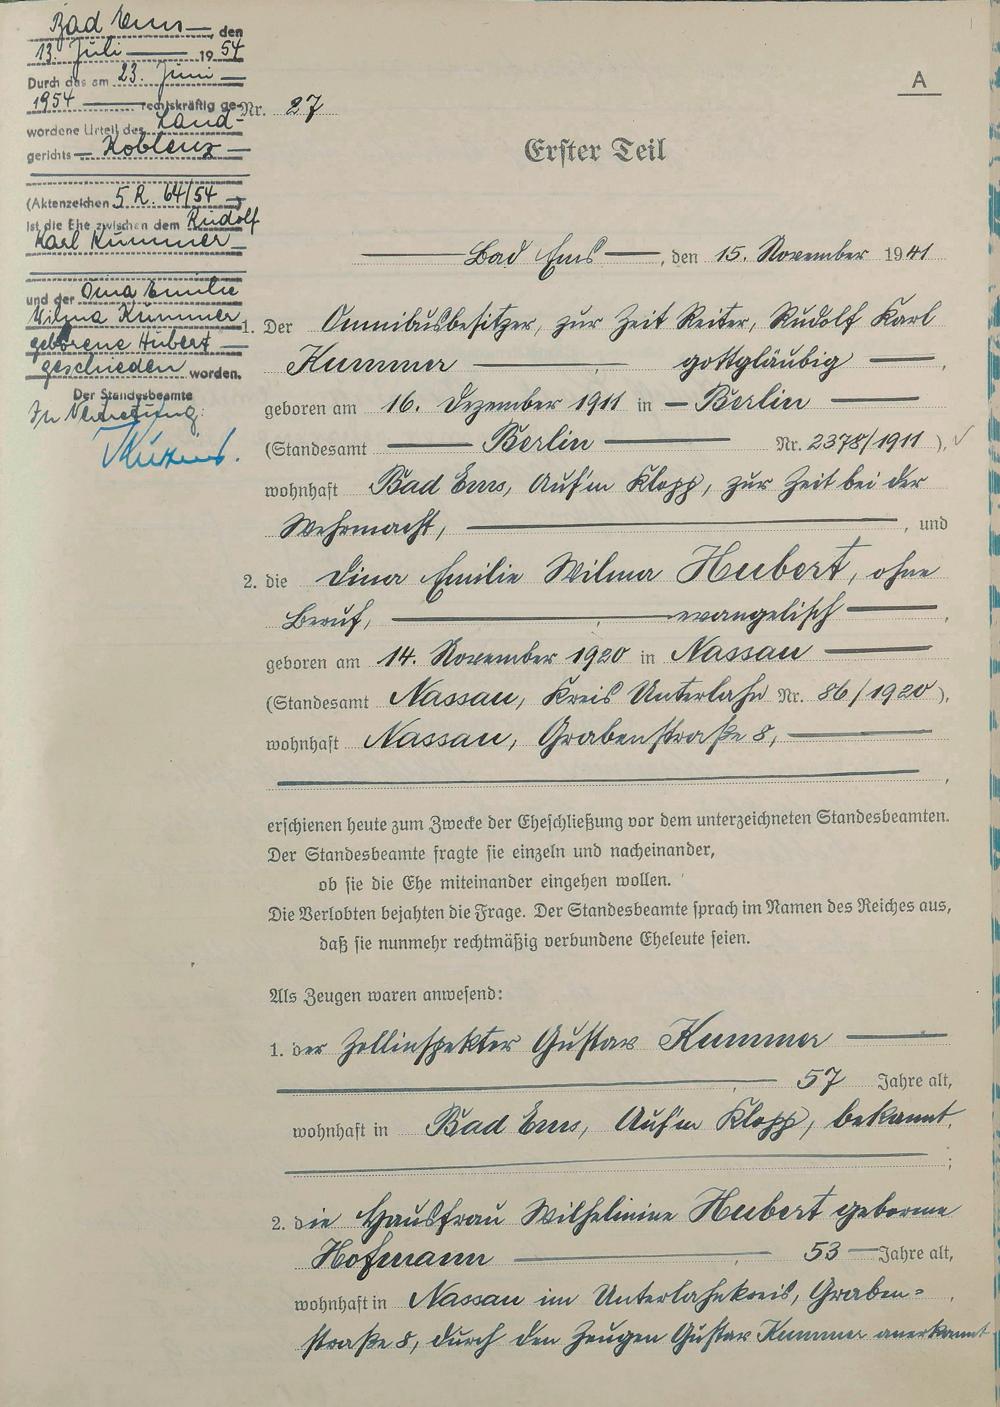 Bad Ems, den
13. Juli 1954
Durch das am 23. Juni
1954 rechtskräftig ge-
wordene Urteil des Land-
gerichts Koblenz
(Aktenzeichen 5 R. 64/54)
ist die Ehe zwischen dem Rudolf
Karl Kummer
und der Dina Emilie
Wilma Kummer
geborene Hubert
geschieden worden.
Der Standesbeamte
In Vertretung:
A
Nr. 27
Erster Teil
Bad Ems, den 15. November 1941
1. Der Omnibusbesitzer, zur Zeit Reiter, Rudolf Karl
Kummer gottgläubig,
geboren am 16. Dezember 1911 in Berlin
(Standesamt Berlin Nr. 2378/1911),
wohnhaft Bad Ems, Auf'm Klopp, zur Zeit bei der
Wehrmacht, , und
2. die Dina Emilie Wilma Hubert, ohne
Beruf, evangelisch,
geboren am 14. November 1920 in Nassau
(Standesamt Nassau, Kreis Unterlahn Nr. 86/1920),
wohnhaft Nassau, Grabenstraße 8,
,
erschienen heute zum Zwecke der Eheschließung vor dem unterzeichneten Standesbeamten.
Der Standesbeamte fragte sie einzeln und nacheinander,
ob sie die Ehe miteinander eingehen wollen.
Die Verlobten bejahten die Frage. Der Standesbeamte sprach im Namen des Reiches aus,
daß sie nunmehr rechtmäßig verbundene Eheleute seien.
Als Zeugen waren anwesend:
1. der Zollinspektor Gustav Kummer
57 Jahre alt,
wohnhaft in Bad Ems, Auf'm Klopp, bekannt,
;
2. die Hausfrau Wilhelmine Hubert geborene
Hofmann 53 Jahre alt,
wohnhaft in Nassau im Unterlahnkreis, Graben-
straße 8, durch den Zeugen Gustav Kummer anerkannt